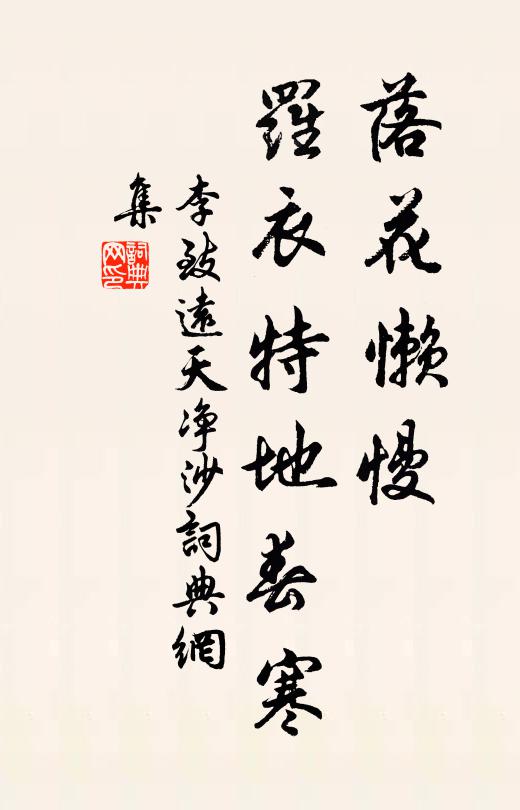 落花懒慢
羅衣特地春寒
李致遠天净沙詞典網
集
詞典网印